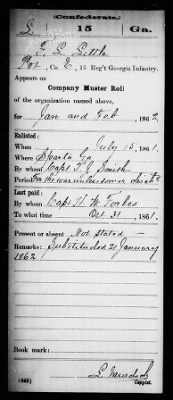 (Confederate.)
S 15 Ga.
Pvt, Co. E, 15 Reg't Georgia Infantry.
Appears on
Company Muster Roll
of the organization named above,
for Jan and Feb, 1862
Enlisted:
When July 15, 1861.
Where Sparta Ga
By whom Capt T. J. Smith
Period For the war unless sooner disch
Last paid:
By whom Capt H. M. Forbes
To what time Oct 31, 1861.
Present or absent Not stated
Remarks: Substituted 21 January
1862
Book mark:
L. Murdock
Copyist.